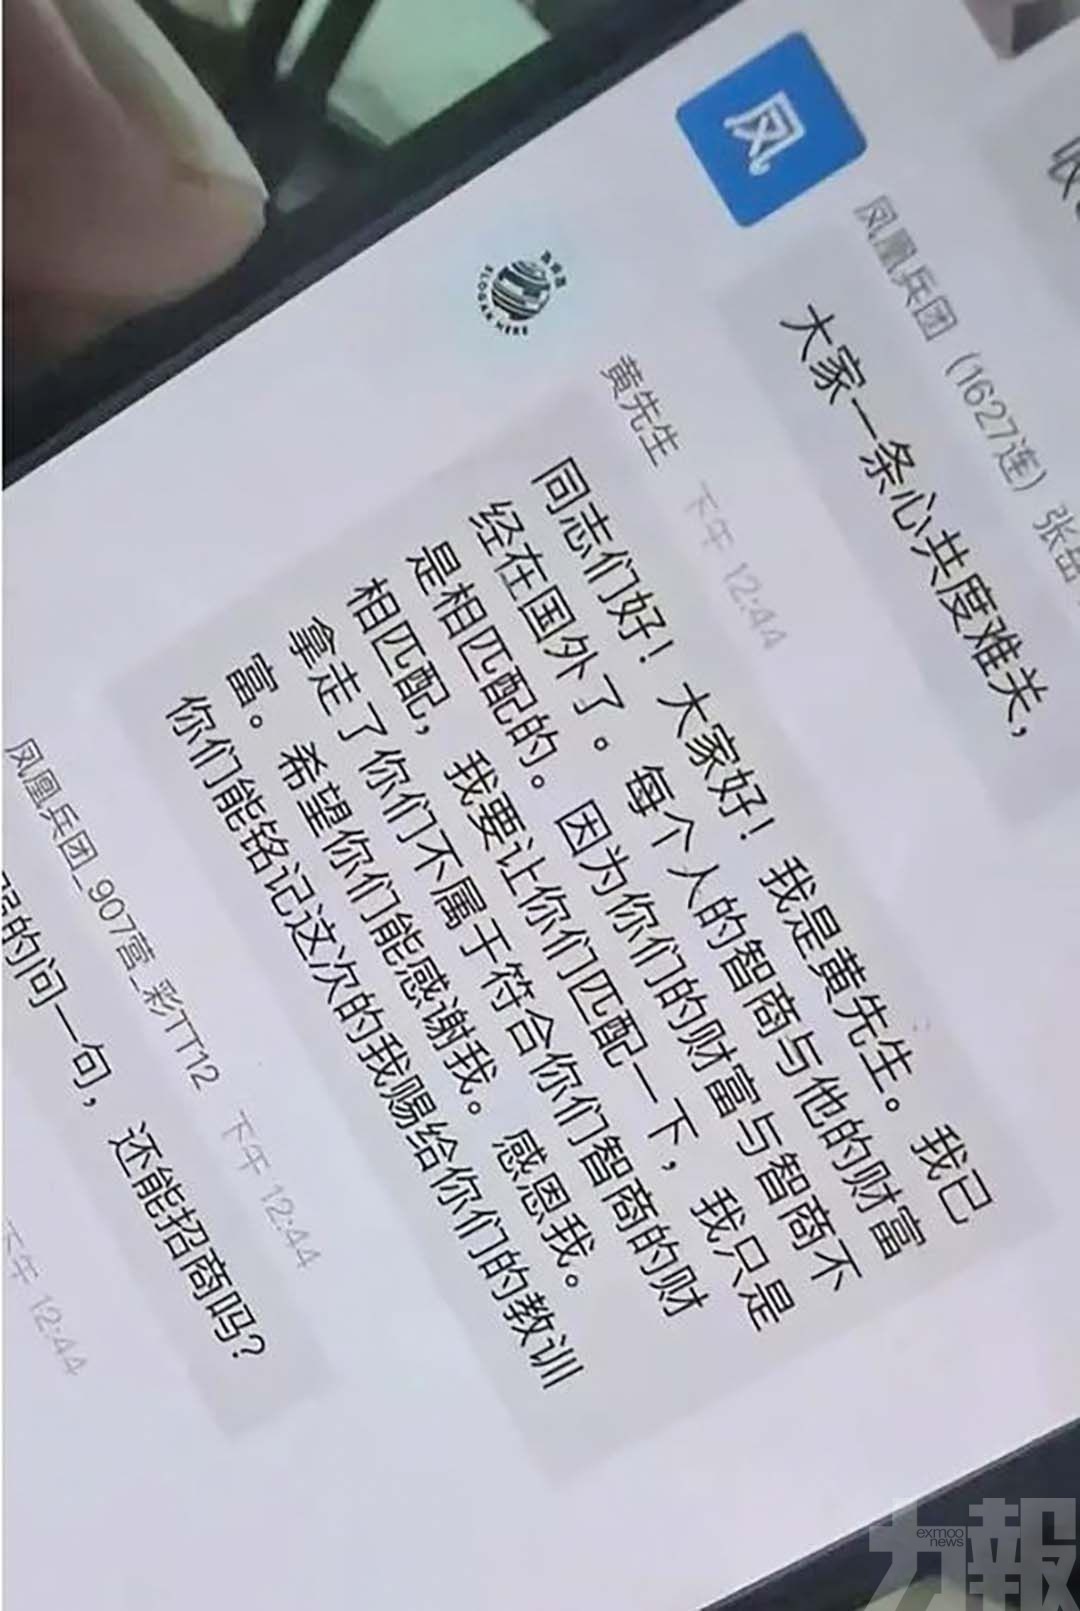 凤
凤凰兵团（1627连）张岳
大家一条心共度难关，
SLOGAN HERE
黄先生 下午 12:44
同志们好！大家好！我是黄先生。我已
经在国外了。每个人的智商与他的财富
是相匹配的。因为你们的财富与智商不
相匹配，我要让你们匹配一下，我只是
拿走了你们不属于符合你们智商的财
富。希望你们能感谢我。感恩我。
你们能铭记这次的我赐给你们的教训
凤凰兵团_907营_彩TT12 下午 12:44
的问一句，还能招商吗？
下午 12:44
力報
exmoo
news